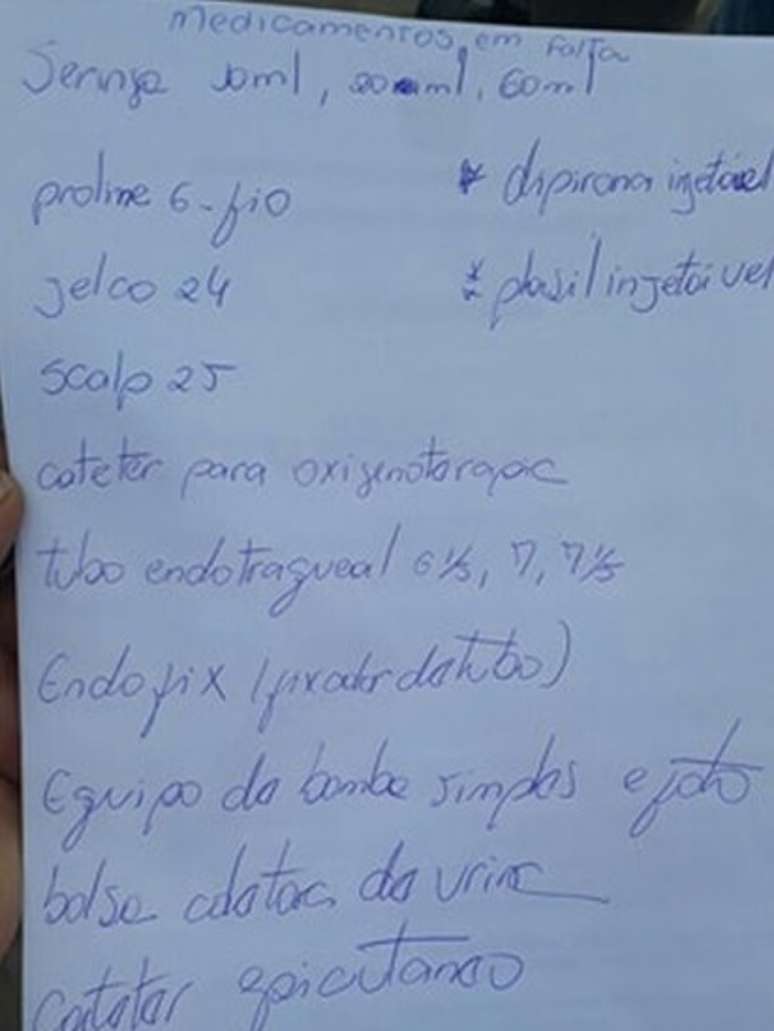 medicamentos em falta
Seringa 10ml, 20 ml, 60ml
proline 6-fio
* dipirona injetável
jelco 24
* plasil injetável
scalp 25
cateter para oxigenoterapia
tubo endotraqueal 6 1/5, 7, 7 1/5
Endofix (fixador do tubo)
Equipo de bomba simples e foto
bolsa coletora de urina
cateter epicutaneo